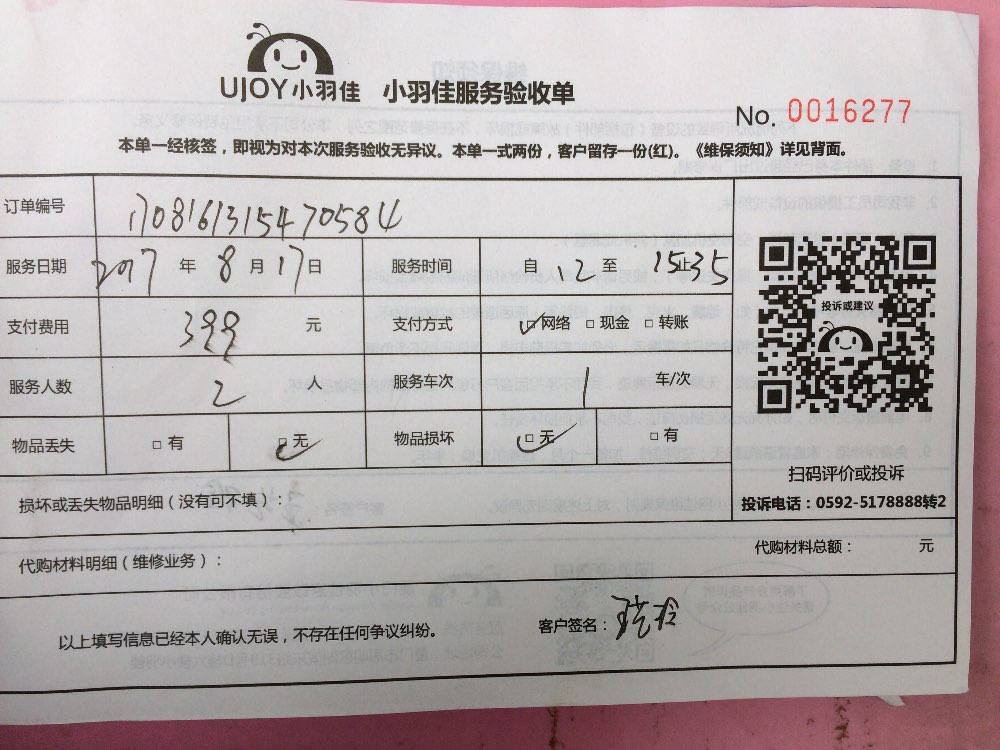 UJOY小羽佳 小羽佳服务验收单
No. 0016277
本单一经核签，即视为对本次服务验收无异议。本单一式两份，客户留存一份(红)。《维保须知》详见背面。
订单编号 1708161315470584
服务日期 2017 年 8 月 17 日 服务时间 自 12 至 15:35
支付费用 399 元 支付方式 ☑网络 □现金 □转账
服务人数 2 人 服务车次 1 车/次
物品丢失 □有 ☑无 物品损坏 ☑无 □有
投诉或建议
扫码评价或投诉
投诉电话：0592-5178888转2
损坏或丢失物品明细（没有可不填）：
代购材料明细（维修业务）： 代购材料总额： 元
以上填写信息已经本人确认无误，不存在任何争议纠纷。 客户签名：